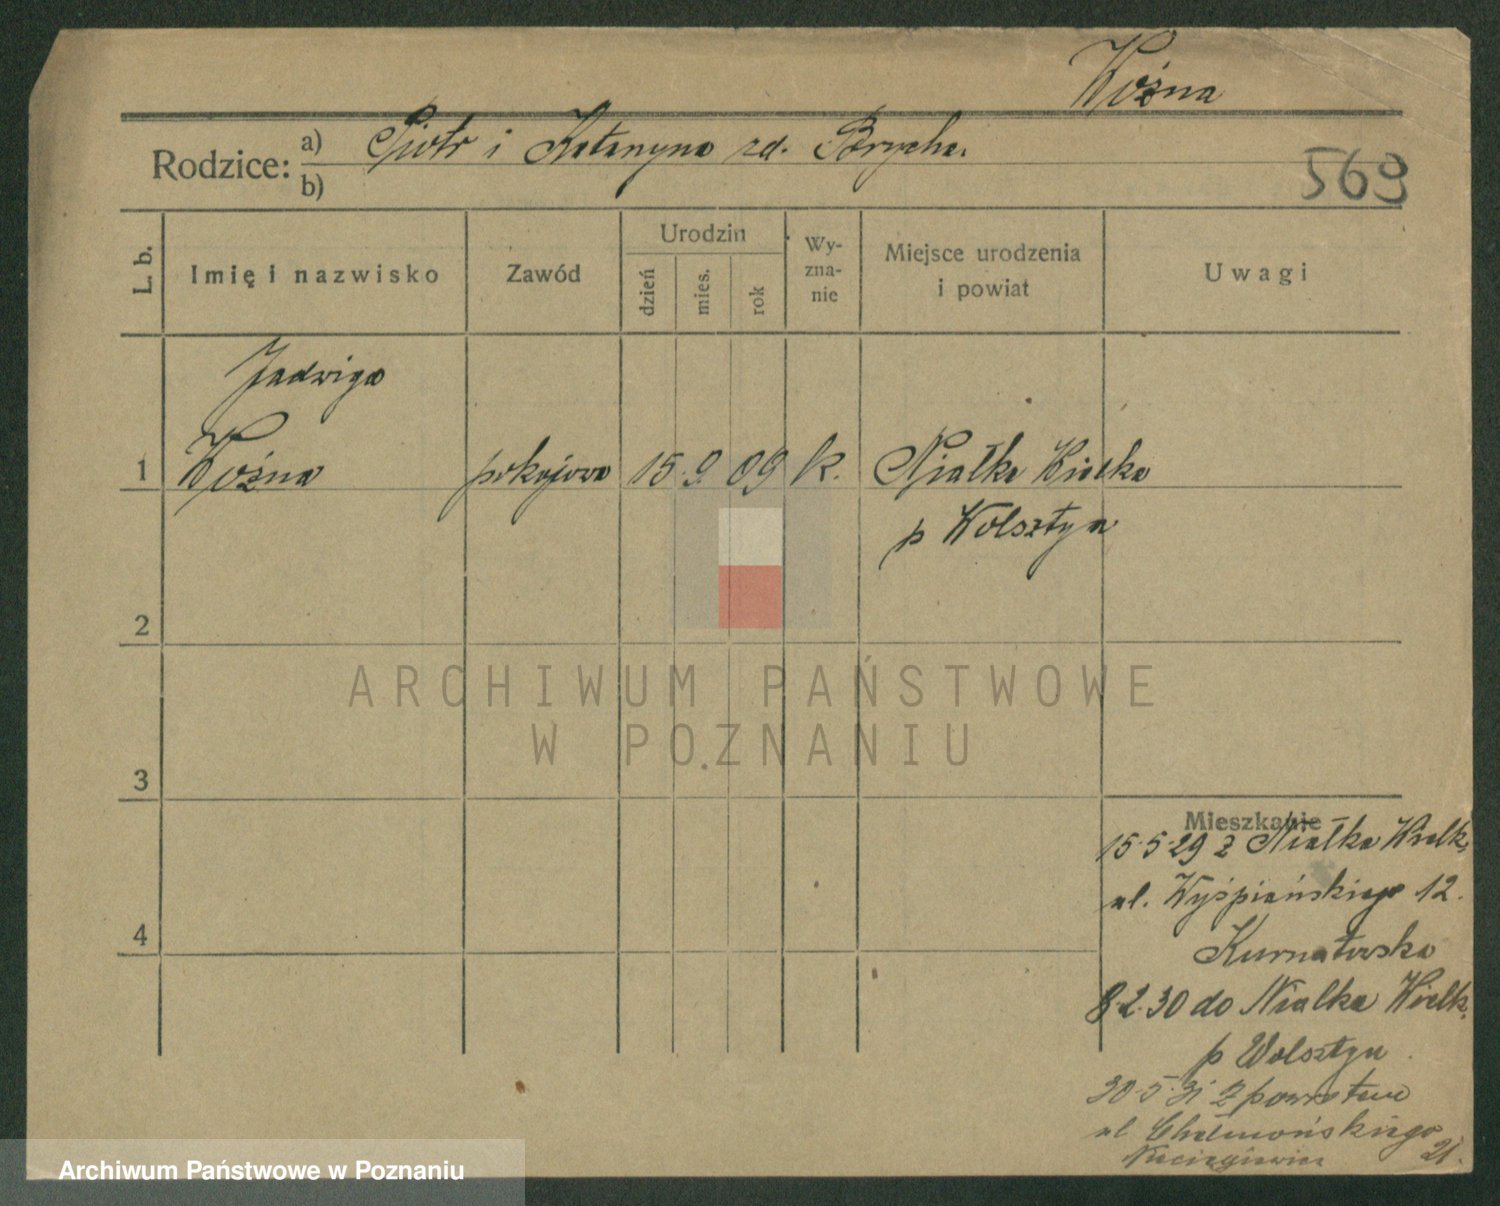 Woźna
Rodzice: a) Piotr i Katarzyna zd. Brycha.
b)
569
L. b.
Imię i nazwisko
Zawód
Urodzin
dzień
mies.
rok
Wy-
zna-
nie
Miejsce urodzenia
i powiat
Uwagi
Jadwiga
1 Woźna pokojowa 15. 9. 09 k. Niałka Wielka
p Wolsztyn
2
3
4
Mieszkanie
15.5.29 z Niałka Wielk.
ul. Wyśpiańskiego 12.
Kurnatowska
8.2.30 do Nialka Wielk.
p Wolsztyn
30.5.31 z powrotem
ul Chełmońskiego
21.
ARCHIWUM PAŃSTWOWE
W POZNANIU
Archiwum Państwowe w Poznaniu